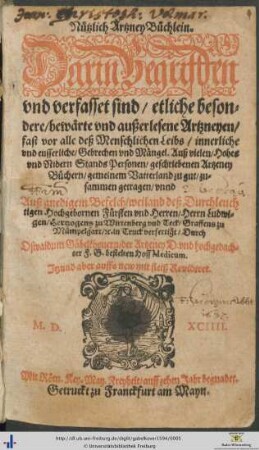 Nützlich Artzney Büchlein.
Darin Begriffen
vnd verfasset sind / etliche beson-
dere / bewärte vnd außerlesene Artzneyen /
fast vor alle deß Menschlichen Leibs / innerliche
vnd eusserliche Gebrechen vnd Mängel. Auß vielen / Hohes
vnd Nidern Standes Personen / geschriebenen Artzney
Büchern / gemeinem Vatterland zu gut / zu-
sammen getragen / vnnd
Auß gnedigem Befelch / weiland deß Durchleuch
tigen Hochgebornen Fürsten vnd Herren / Herrn Ludwi-
gen / Hertzogen zu Würtenberg vnd Teck / Graffen zu
Mümpelgart / in Truck verfertigt / Durch
Oßwaldum Gäbelkouern / der Artzney D. vnd hochgedach-
ter F. G. bestelten Hoff Medicum.
Jtzund aber auffs new mit fleiß
M. D. XCIIII.
Mit Röm. Key. May. Freyheit / auff zehen Jahr begnadet.
Getruckt zu Franckfurt am Mayn.
© Universitätsbibliothek Freiburg